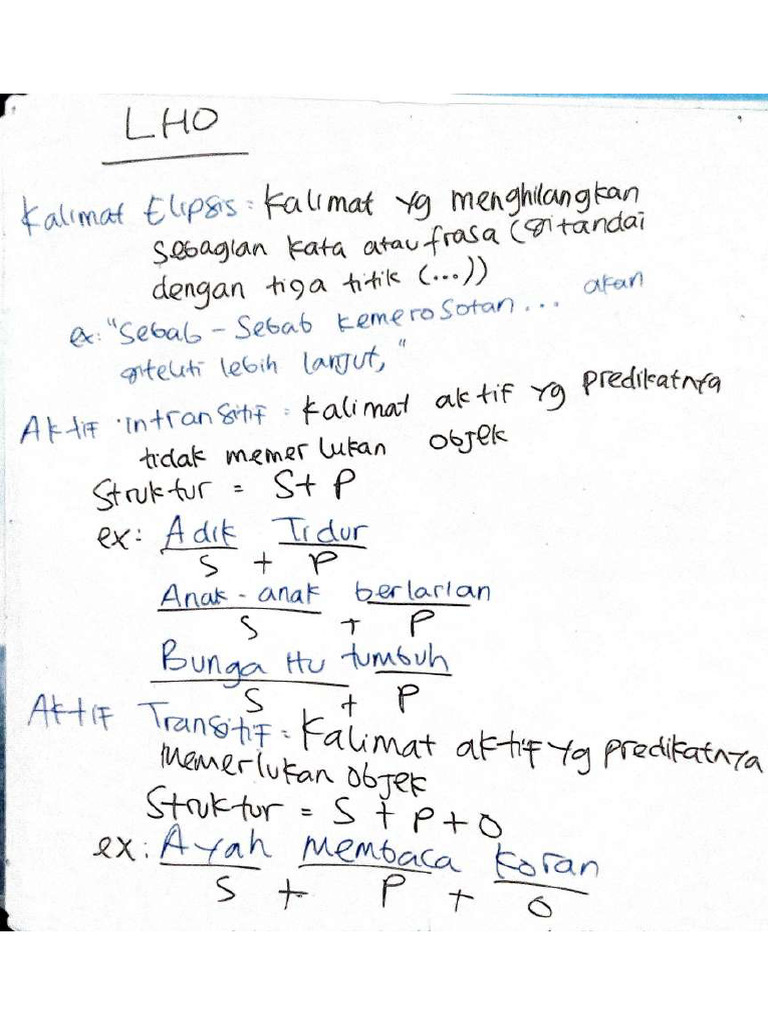 LHO
Kalimat Elipsis : Kalimat yg menghilangkan
sebagian kata atau frasa (ditandai
dengan tiga titik (...))
ex: "Sebab - Sebab kemerosotan ... akan
diteliti lebih lanjut,"
Aktif intransitif : Kalimat aktif yg predikatnya
tidak memerlukan objek
Struktur = S + P
ex: Adik Tidur
S + P
Anak - anak berlarian
S + P
Bunga itu tumbuh
S + P
Aktif Transitif = Kalimat aktif yg predikatnya
Memerlukan objek
Struktur = S + P + O
ex: Ayah membaca koran
S + P + O